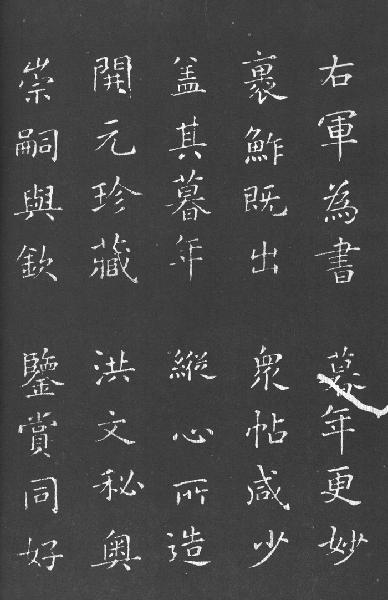 右軍為書暮年更妙
裹鮓既出衆帖咸少
盖其暮年縱心所造
開元珍藏洪文秘奥
崇嗣與欽鑒賞同好